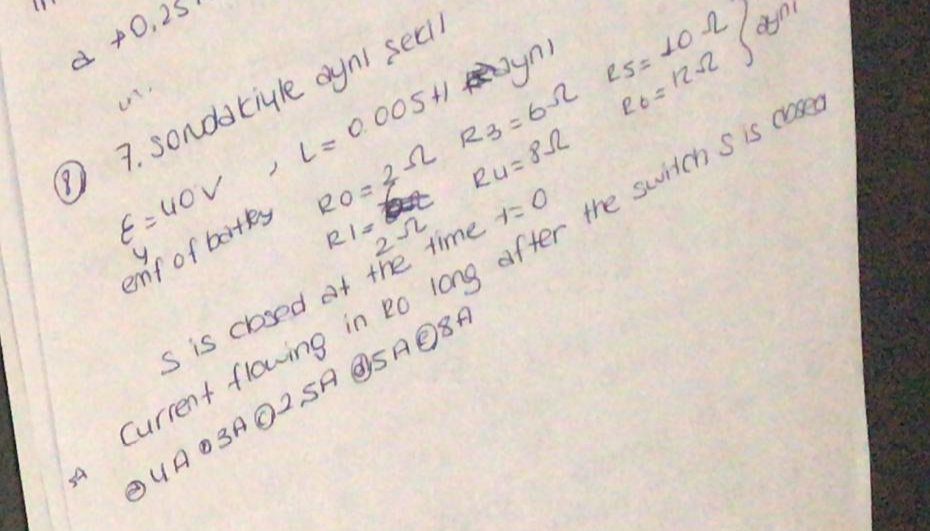 a +0.25
⑧ 7. sorudakiyle aynı şekil
ε = 40V , L = 0.005H aynı
emf of battery R0 = 2Ω R3 = 6Ω R5 = 10Ω } aynı
R1 = 2Ω R4 = 8Ω R6 = 12Ω
S is closed at the time t=0
Current flowing in R0 long after the switch S is closed
ⓐ 4A ⓑ 3A ⓒ 2.5A ⓓ 5A ⓔ 8A